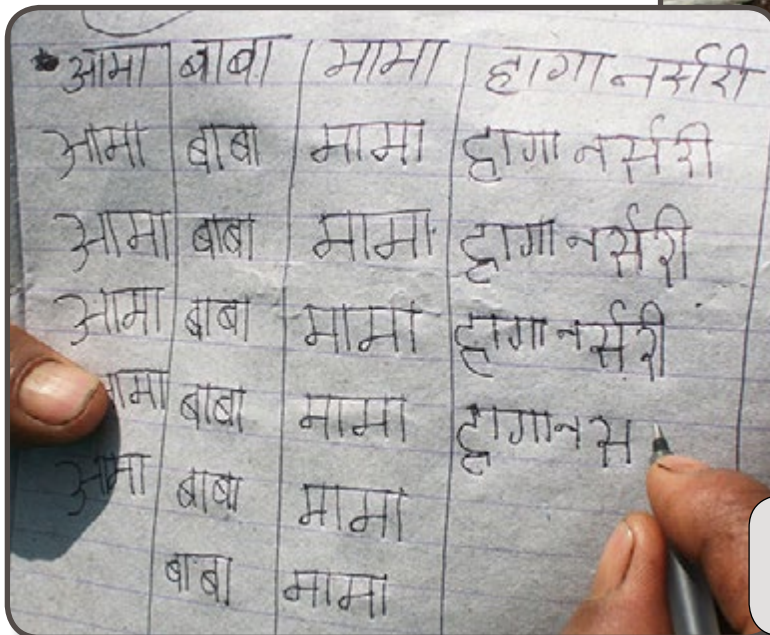 आमा बाबा मामा हागा नर्सरी
आमा बाबा मामा हागा नर्सरी
आमा बाबा मामा हागा नर्सरी
आमा बाबा मामा हागा नर्सरी
बाबा मामा हागा नस
आमा बाबा मामा
बाबा मामा